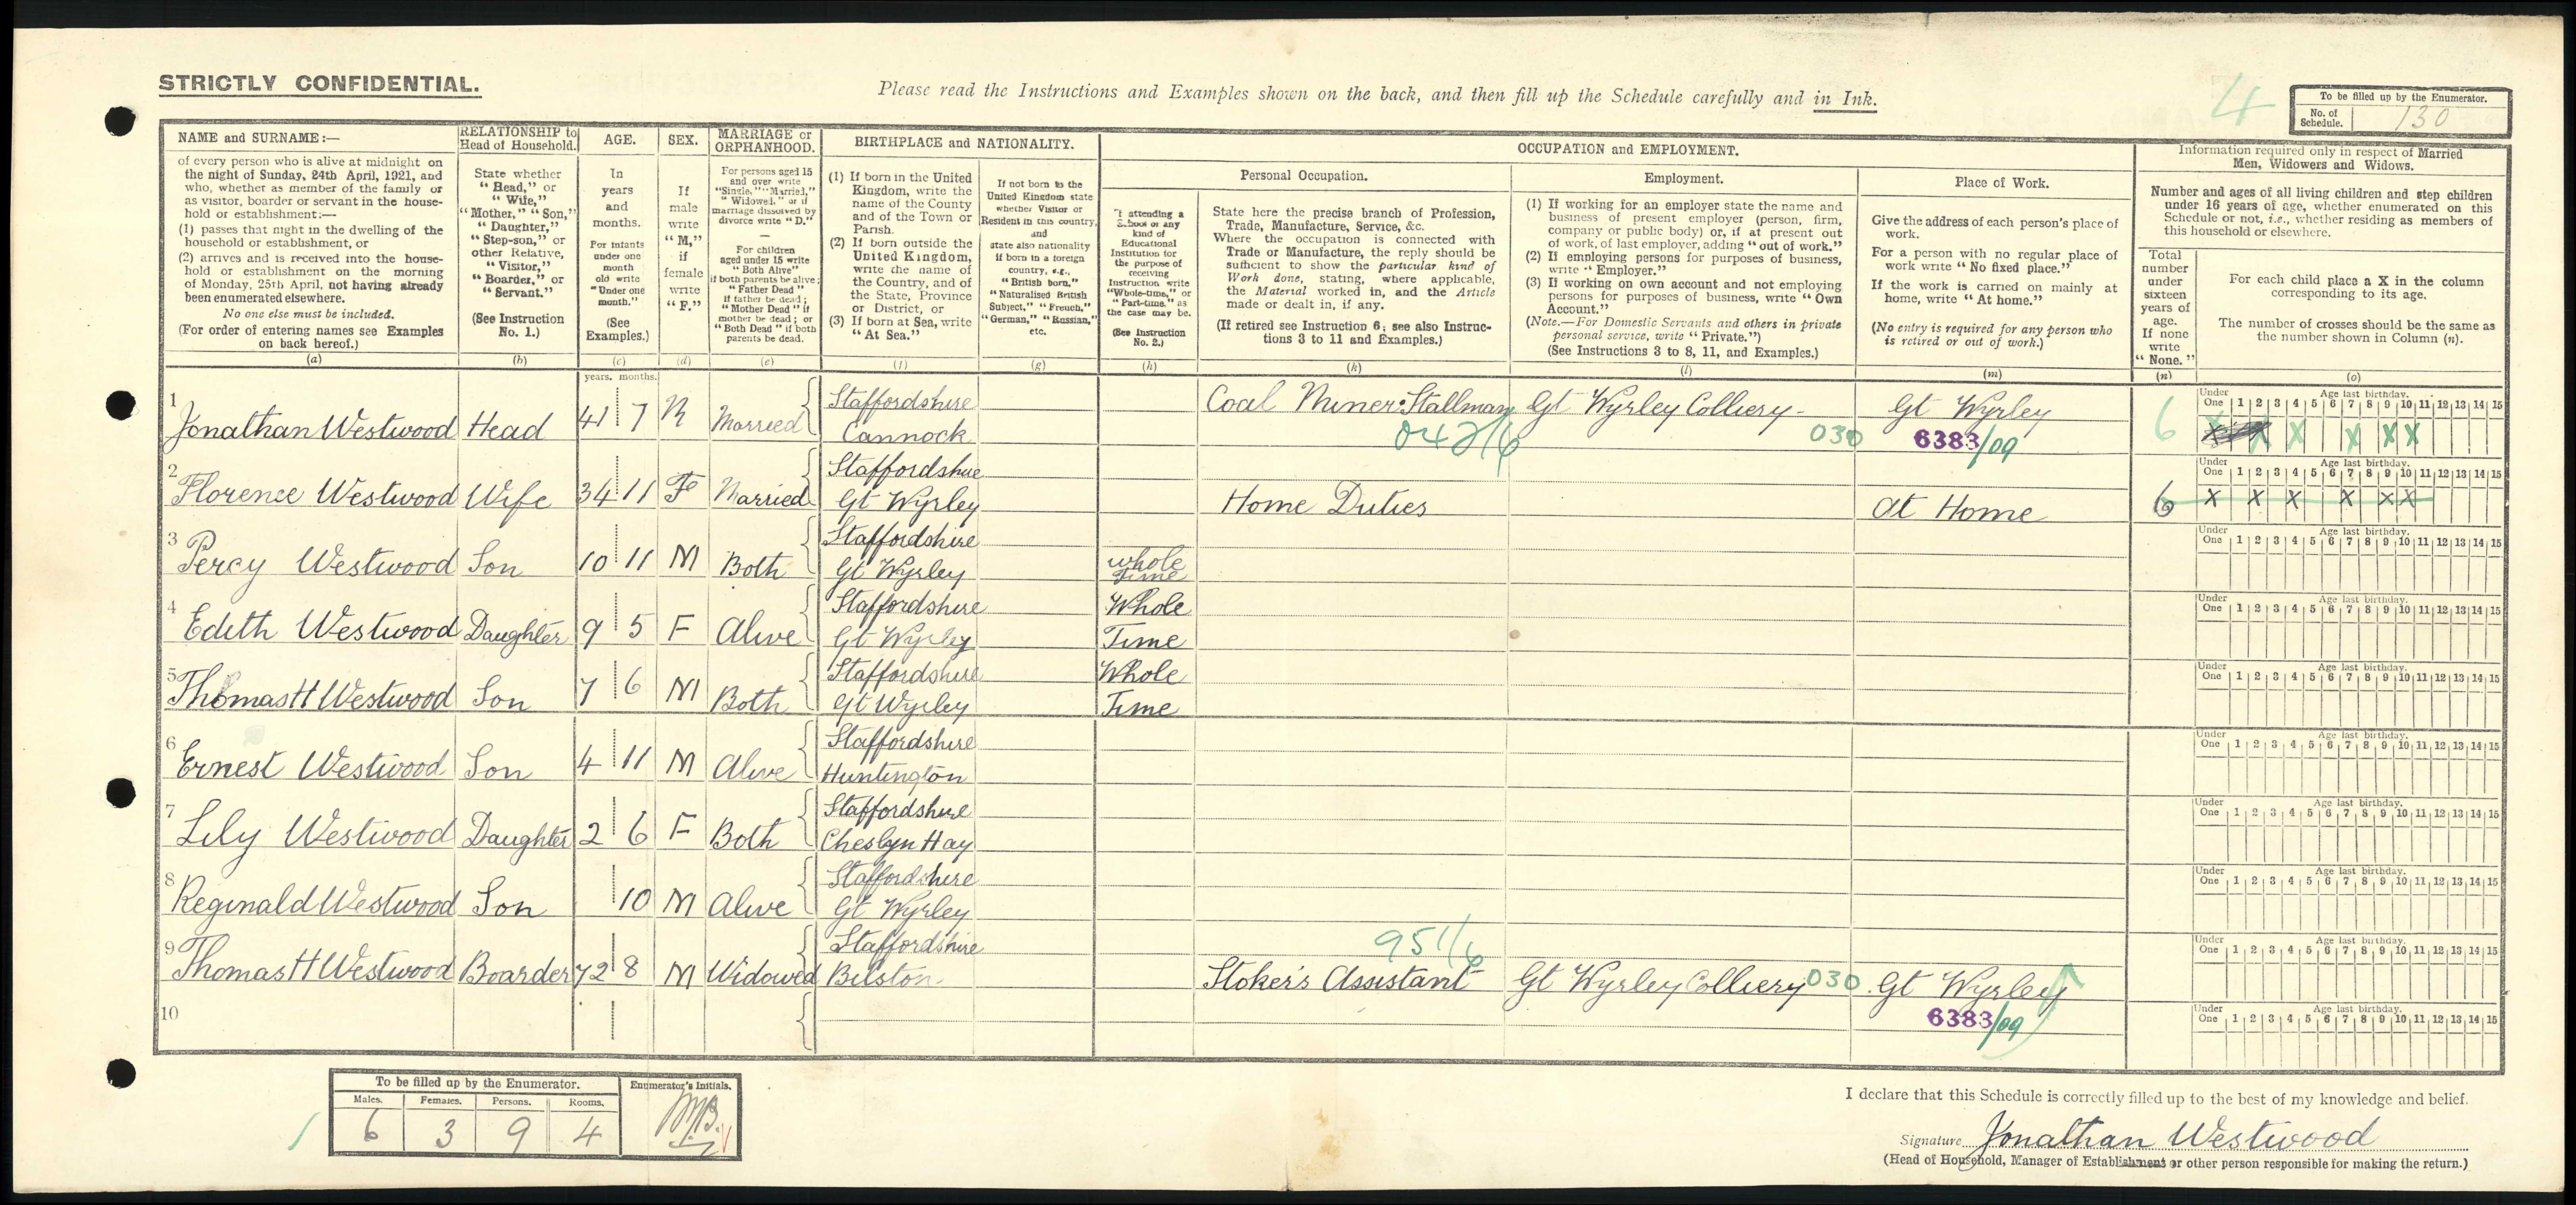 STRICTLY CONFIDENTIAL.
Please read the Instructions and Examples shown on the back, and then fill up the Schedule carefully and in Ink.
4
To be filled up by the Enumerator.
No. of Schedule. 130
NAME and SURNAME:—
of every person who is alive at midnight on
the night of Sunday, 24th April, 1921, and
who, whether as member of the family or
as visitor, boarder or servant in the house-
hold or establishment:—
(1) passes that night in the dwelling of the
household or establishment, or
(2) arrives and is received into the house-
hold or establishment on the morning
of Monday, 25th April, not having already
been enumerated elsewhere.
No one else must be included.
(For order of entering names see Examples
on back hereof.)
(a)
RELATIONSHIP to
Head of Household.
State whether
"Head," or
"Wife,"
"Mother," "Son,"
"Daughter,"
"Step-son," or
other Relative,
"Visitor,"
"Boarder," or
"Servant."
(See Instruction
No. 1.)
(b)
AGE.
In
years
and
months.
For infants
under one
month
old write
"Under one
month."
(See
Examples.)
(c)
SEX.
If
male
write
"M,"
if
female
write
"F."
(d)
MARRIAGE or
ORPHANHOOD.
For persons aged 15
and over write
"Single," "Married,"
"Widowed," or if
marriage dissolved by
divorce write "D."
—
For children
aged under 15 write
"Both Alive"
if both parents be alive;
"Father Dead"
if father be dead;
"Mother Dead" if
mother be dead; or
"Both Dead" if both
parents be dead.
(e)
BIRTHPLACE and NATIONALITY.
(1) If born in the United
Kingdom, write the
name of the County
and of the Town or
Parish.
(2) If born outside the
United Kingdom,
write the name of
the Country, and of
the State, Province
or District, or
(3) If born at Sea, write
"At Sea."
(f)
If not born in the
United Kingdom state
whether Visitor or
Resident in this country,
and
state also nationality
if born in a foreign
country, e.g.,
"British born,"
"Naturalised British
Subject," "French,"
"German," "Russian,"
etc.
(g)
OCCUPATION and EMPLOYMENT.
If attending a
School or any
kind of
Educational
Institution for
the purpose of
receiving
Instruction write
"Whole-time," or
"Part-time," as
the case may be.
(See Instruction
No. 2.)
(h)
Personal Occupation.
State here the precise branch of Profession,
Trade, Manufacture, Service, &c.
Where the occupation is connected with
Trade or Manufacture, the reply should be
sufficient to show the particular kind of
Work done, stating, where applicable,
the Material worked in, and the Article
made or dealt in, if any.
(If retired see Instruction 6; see also Instruc-
tions 3 to 11 and Examples.)
(k)
Employment.
(1) If working for an employer state the name and
business of present employer (person, firm,
company or public body) or, if at present out
of work, of last employer, adding "out of work."
(2) If employing persons for purposes of business,
write "Employer."
(3) If working on own account and not employing
persons for purposes of business, write "Own
Account."
(Note.—For Domestic Servants and others in private
personal service, write "Private.")
(See Instructions 3 to 8, 11, and Examples.)
(l)
Place of Work.
Give the address of each person's place of
work.
For a person with no regular place of
work write "No fixed place."
If the work is carried on mainly at
home, write "At home."
(No entry is required for any person who
is retired or out of work.)
(m)
Information required only in respect of Married
Men, Widowers and Widows.
Number and ages of all living children and step children
under 16 years of age, whether enumerated on this
Schedule or not, i.e., whether residing as members of
this household or elsewhere.
Total
number
under
sixteen
years of
age.
If none
write
"None."
(n)
For each child place a X in the column
corresponding to its age.
The number of crosses should be the same as
the number shown in Column (n).
(o)
years. months.
1 Jonathan Westwood Head 41 7 M Married Staffordshire Cannock Coal Miner: Stallman Gt Wyrley Colliery 030 Gt Wyrley 6383/09 6 X X X X X X
Under One 1 2 3 4 5 6 7 8 9 10 11 12 13 14 15
Age last birthday.
2 Florence Westwood Wife 34 11 F Married Staffordshire Gt Wyrley Home Duties At Home 6 X X X X X X
Under One 1 2 3 4 5 6 7 8 9 10 11 12 13 14 15
Age last birthday.
3 Percy Westwood Son 10 11 M Both Staffordshire Gt Wyrley whole time
Under One 1 2 3 4 5 6 7 8 9 10 11 12 13 14 15
Age last birthday.
4 Edith Westwood Daughter 9 5 F Alive Staffordshire Gt Wyrley Whole Time
Under One 1 2 3 4 5 6 7 8 9 10 11 12 13 14 15
Age last birthday.
5 Thomas H Westwood Son 7 6 M Both Staffordshire Gt Wyrley Whole Time
Under One 1 2 3 4 5 6 7 8 9 10 11 12 13 14 15
Age last birthday.
6 Ernest Westwood Son 4 11 M Alive Staffordshire Huntington
Under One 1 2 3 4 5 6 7 8 9 10 11 12 13 14 15
Age last birthday.
7 Lily Westwood Daughter 2 6 F Both Staffordshire Cheslyn Hay
Under One 1 2 3 4 5 6 7 8 9 10 11 12 13 14 15
Age last birthday.
8 Reginald Westwood Son 10 M Alive Staffordshire Gt Wyrley
Under One 1 2 3 4 5 6 7 8 9 10 11 12 13 14 15
Age last birthday.
9 Thomas H Westwood Boarder 72 8 M Widowed Staffordshire Bilston 951/6 Stoker's Assistant Gt Wyrley Colliery 030 Gt Wyrley 6383/09
Under One 1 2 3 4 5 6 7 8 9 10 11 12 13 14 15
Age last birthday.
10
Under One 1 2 3 4 5 6 7 8 9 10 11 12 13 14 15
Age last birthday.
To be filled up by the Enumerator.
Males. Females. Persons. Rooms.
6 3 9 4
Enumerator's Initials.
I declare that this Schedule is correctly filled up to the best of my knowledge and belief.
Signature Jonathan Westwood
(Head of Household, Manager of Establishment or other person responsible for making the return.)